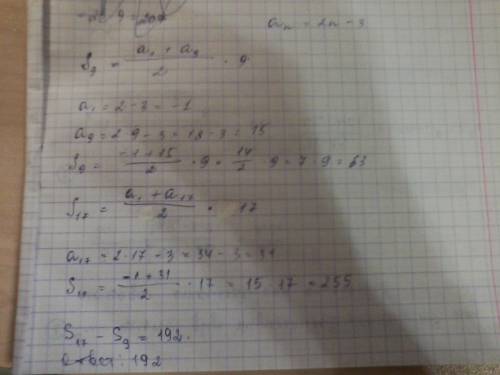 aₙ = 2n - 3
S₉ = (a₁ + a₉)/2 · 9
a₁ = 2 - 3 = -1
a₉ = 2·9 - 3 = 18 - 3 = 15
S₉ = (-1 + 15)/2 · 9 = 14/2 · 9 = 7 · 9 = 63
S₁₇ = (a₁ + a₁₇)/2 · 17
a₁₇ = 2·17 - 3 = 34 - 3 = 31
S₁₇ = (-1 + 31)/2 · 17 = 15 · 17 = 255
S₁₇ - S₉ = 192.
Ответ: 192